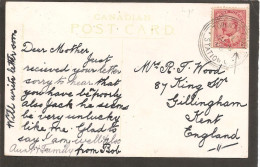 CANADIAN
POST CARD
Dear Mother,
Just
received your letter
sorry to hear that
you have been
Jack he seems
be very unlucky
like. Glad to
say I am well also
from Bob
Will write
Mrs R. T. Wood
87 King St
Gillingham
Kent
England